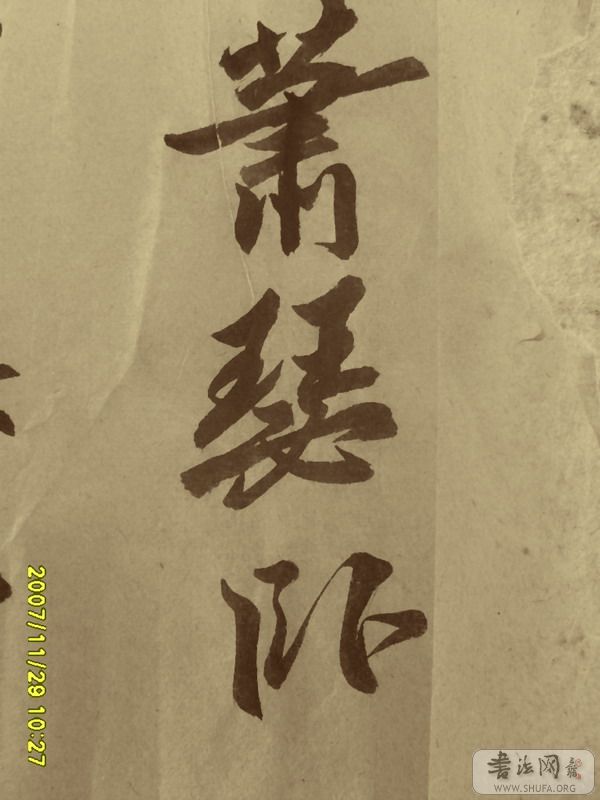 蕭瑟卧
2007/11/29 10:27
書法网
WWW.SHUFA.ORG